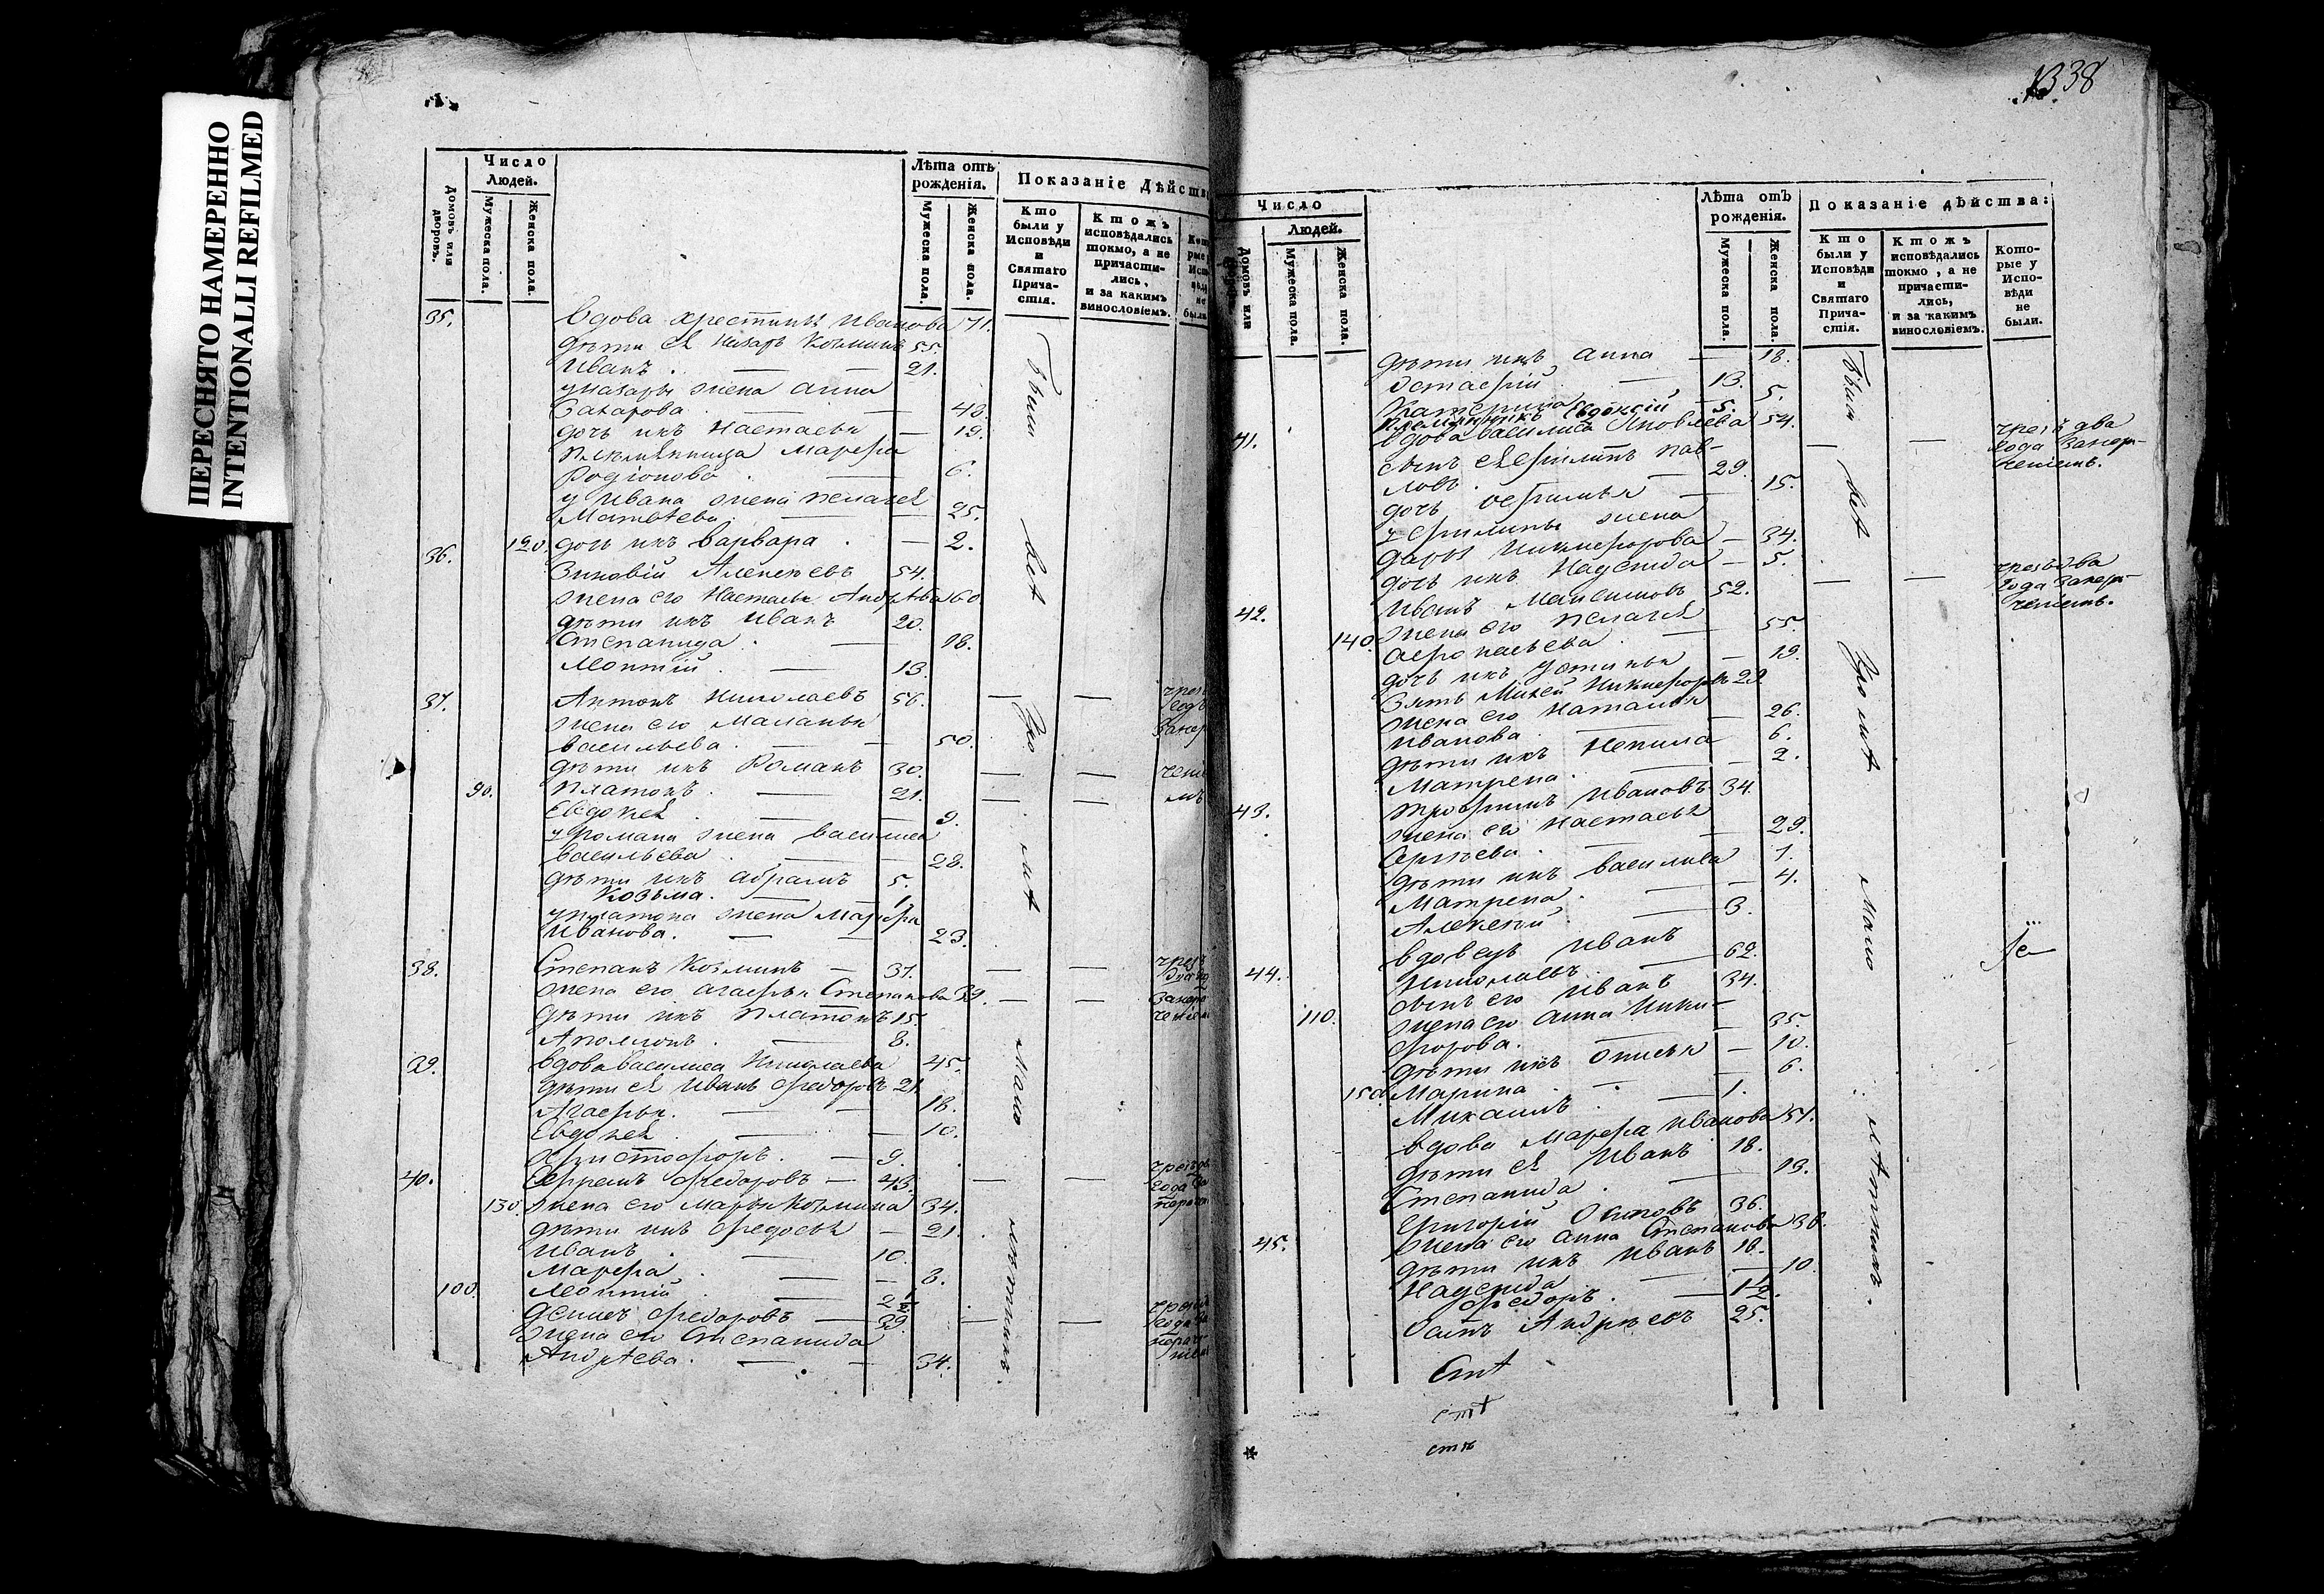 ПЕРЕСНЯТО НАМЕРЕННО
INTENTIONALLI REFILMED
Домовъ или дворовъ.
Число Людей.
Мужеска пола.
Женска пола.
Лѣта отъ рожденія.
Мужеска пола.
Женска пола.
Показаніе Дѣйств
Кто были у Исповѣди и Святаго Прича-стія.
Ктожъ исповѣдались токмо, а не причасти-лись, и за какимъ винословіемъ.
35. вдова Христинья Иванова 71.
дѣти ея Назаръ Козминъ 55.
Иванъ. — — 21.
у Назара жена Анна
Захарова. — — 43.
дочь ихъ Настасья — 19.
племянница Марфа
Родіонова. — 6.
у Ивана жена Пелагея
Матвѣева. — — 25.
120. дочь ихъ Варвара. — 2.
36. Зиновій Алексеевъ 54.
жена его Настасья Андрѣева 60.
дѣти ихъ Иванъ 20.
Степанида. — 18.
Леонтій. — 13.
37. Антонъ Николаевъ 56. — —
жена его Маланья
Васильева. — — 50.
дѣти ихъ Романъ 30. — —
90. Платонъ. — 21. — —
Евдокея. — — 9.
у Романа жена Василиса
Васильева. — — 28.
дѣти ихъ Абрамъ 5.
Козьма. — 1.
у Платона жена Марфа
Иванова. — — 23.
38. Степанъ Козминъ — 37. — —
жена его Агафья Степанова 39. — —
дѣти ихъ Платонъ 15.
Аполлонъ. — 8.
39. вдова Василиса Николаева 45.
дѣти ея Иванъ Федоровъ 21.
Агафья. — — 18.
Евдокея. — — 10.
Христофоръ. — 9.
40. Ефремъ Федоровъ — 43. — —
130. жена его Марья Козмина 34.
дѣти ихъ Федосья — 21.
Иванъ. — 10.
Марфа. — — 8.
100. Леонтій. — 2½
Денисъ Федоровъ — 39. — —
жена его Степанида
Андрѣева. — — 34.
Были
всѣ
Ухо
лѣ
Мало
лѣтнихъ.
338
Число
Домовъ или
Людей.
Мужеска пола.
Женска пола.
Лѣта отъ рожденія.
Мужеска пола.
Женска пола.
Показаніе дѣйства:
Кто были у Исповѣди и Святаго Прича-стія.
Ктожъ исповѣдались токмо, а не причасти-лись, и за какимъ винословіемъ.
Кото-рые у Испо-вѣди не были.
дѣти ихъ Анна — 18.
— 13.
Катерина 5.
племянникъ Евдокій 5.
41. вдова Василиса Яковлева 54.
сынъ ея Филипъ Пав-
ловъ. — 29.
дочь — 15.
у Филипа жена
Дарья Никифорова — 34.
дочь ихъ Надежда — 5.
42. Иванъ Максимовъ 52.
140. жена его Пелагея
— 55.
дочь ихъ Устинья — 19.
Зять Михей Никифоровъ 29.
жена его Наталья
Иванова. — — 26.
дѣти ихъ — 6.
Матрена. — — 2.
43. Трофимъ Ивановъ 34.
жена его Настасья
Сергѣева. — — 29.
дѣти ихъ Василиса 7.
Матрена. — — 4.
Алексей. — 3.
44. вдовецъ Иванъ
Николаевъ. — 62.
сынъ его Иванъ 34.
110. жена его Анна Ники-
форова. — — 35.
дѣти ихъ — 10.
150. Марина. — — 6.
Михаилъ. — 1.
вдова Марфа Иванова 51.
дѣти ея Иванъ 18.
Степанида. — 13.
45. Григорій Осиповъ 36.
жена его Анна Степанова 38.
дѣти ихъ Иванъ 18.
Надежда — 10.
Федоръ. — 1½.
Андреевъ 25.
Были
всѣ
Ухо лѣ
Мало
лѣтнихъ.
чрезъ два
года